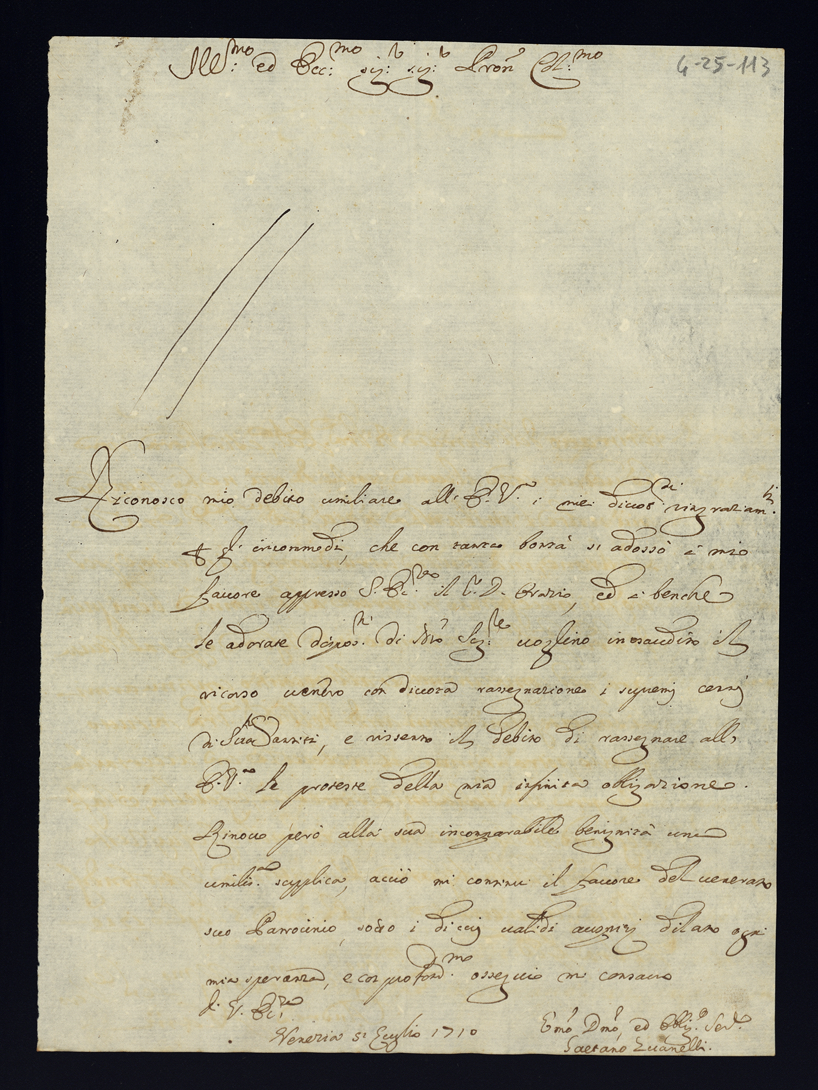 Ill:mo ed Ecc:mo sig:r sig:r Pron Col:mo
4-25-113
Riconosco mio debito umiliare all' E. V.a i miei divot:mi ringraziam:ti
gl' incommodi, che con tanta bontà si adossò a mio
favore appresso S. Ecc:za il D. Orazio, ed a benche
le adorate dispos:ni di Sig:re voglino inesaudito il
ricorso venero con divota rassegnazione i supremi cenni
di Sua Santità, e rissento il debito di rassegnare all'
E. V.a le proteste della mia infinita obligazione.
Rinovo però alla sua incomparabile benignità una
umilis.a supplica, acciò mi continui il favore del venerato
suo Patrocinio, sotto i di cui validi auspicij dilato ogni
mia speranza, e con profond.mo ossequio mi consacro
di V. Ecc:za
Venezia 5 Luglio 1710
Umo Dmo, ed Oblig.o Ser.e
Gaetano Zuanelli.